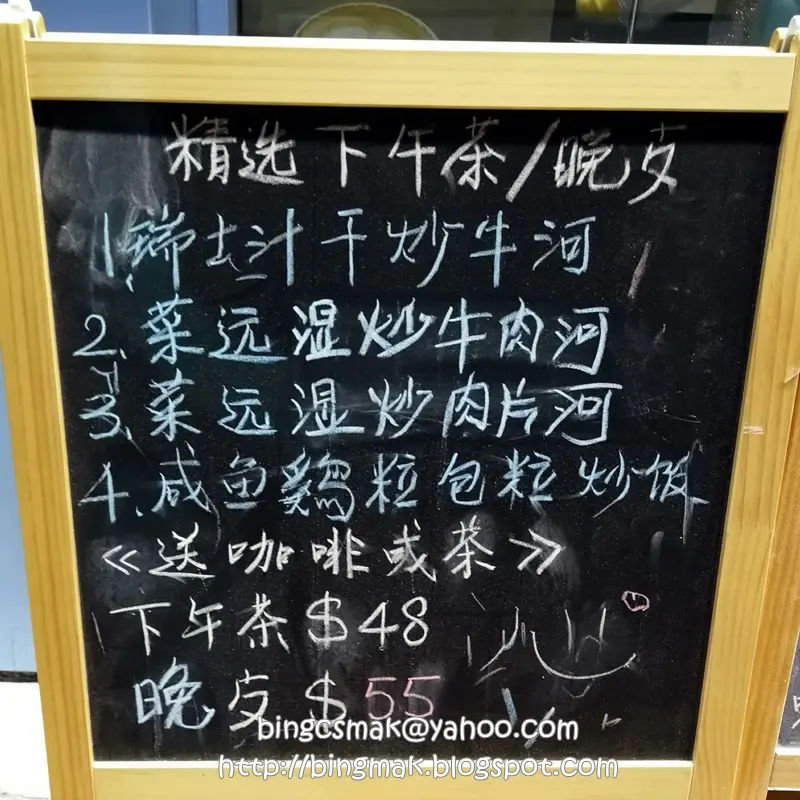 精选下午茶/晚歺
1.瑞士汁干炒牛河
2.菜远湿炒牛肉河
3.菜远湿炒肉片河
4.咸鱼鷄粒包粒炒饭
<<送咖啡或茶>>
下午茶$48
晚歺$55
bingcsmak@yahoo.com
http://bingmak.blogspot.com